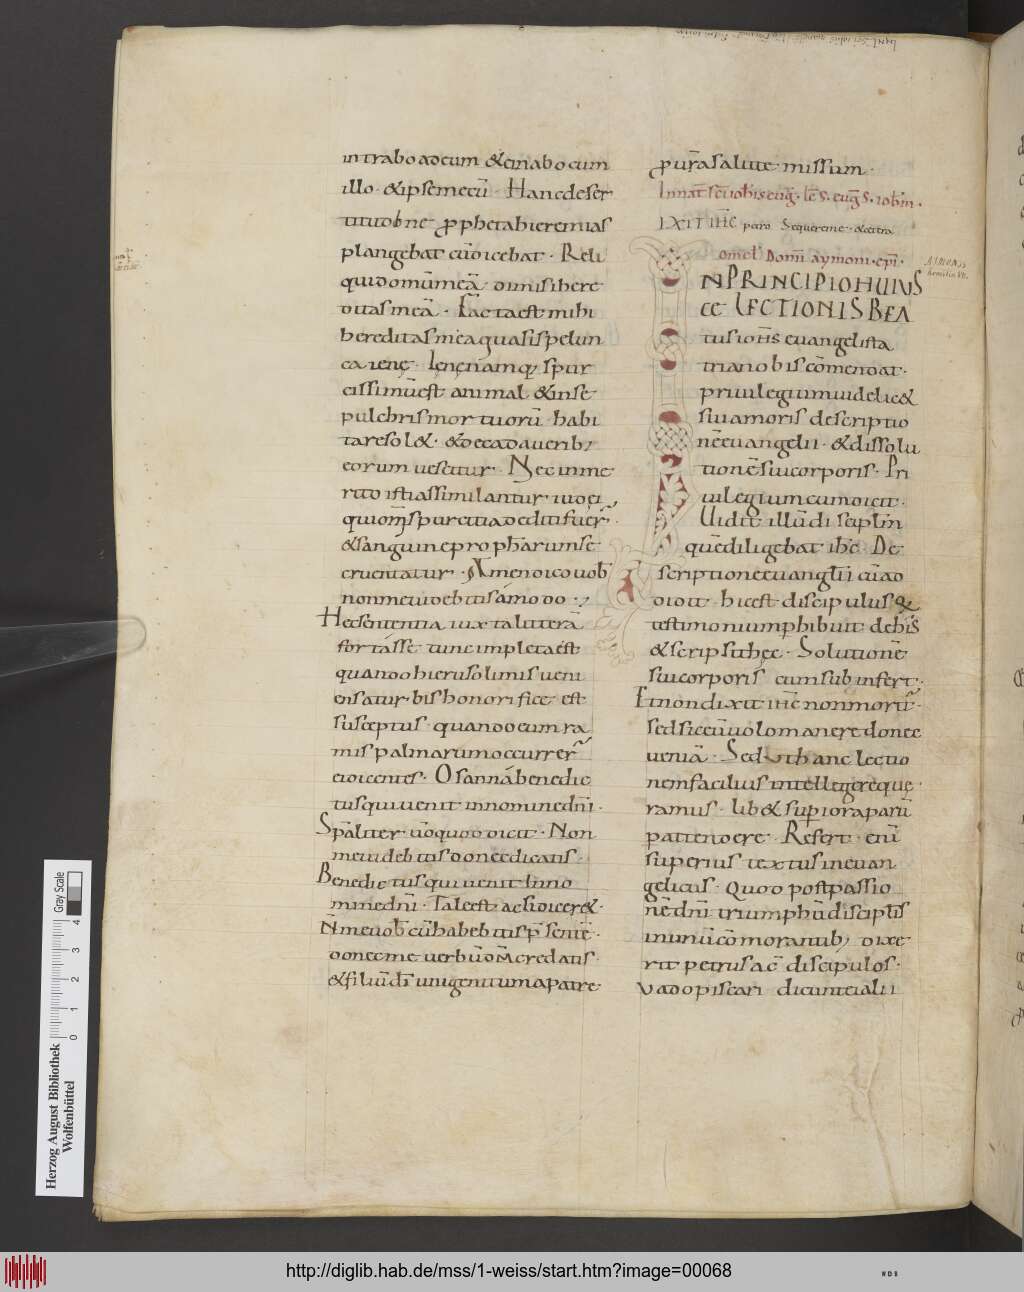 intrabo ad eum & cenabo cum
illo · & ipse mecū · Hanc deser
titudinē prophetahieremias
plangebat cū dicebat · Reli
qui domūmeā dimisi here
ditasmeā · Facta est mihi
hereditas mea quasi spelun
ca ienę · Ienę namq; spur
cissimū est animal & inse
pulchris mortuorū habi
tare sol& · & de cadauerib;
eorum uescitur · Nec inme
rito isti assimilantur iudęi
qui om̄i spurcitia dediti fuer̄
& sanguine prophetarum se
cruentatur · Amen dico uob̄
non me uidebitis ámodo ·
Hec sententia iuxta litterā
fortásse tunc impleta ést
quando hierusolimis ueni
ens a turbis honorifice est
susceptus · quando cum ra
mis palmarum occurrer̄
ei dicentes · O sanná benedic
tus qui uenit in nomine dn̄i ·
Sp̄aliter ūo quod dicit · Non
me uidebitis donec dicatis ·
Benedictus qui uenit Inno
mine dn̄i · Tale est ac si dicer& ·
N̄ me uob̄ cū habebitis p̄sentē ·
donec me uerbū om̄a credatis ·
& filiū dī unigenitum a patre
pro ur̄a salute missum ·
In nat̄ sc̄i iohis euḡ · lc̄ s · euḡ s · iohn̄ ·
IXIT IHC petro Sequere me · & cetera
omel̄ Domn̄i aymoni · ep̄i ·
AIMONIS
homilia VII.
IN PRINCIPIO HUIUS
CE LECTIONIS BEA
tus iohn̄s euangelista
tria nobis cōmendat ·
priuilegium uidelic&
sui amoris descriptio
nē euangelii · & dissolu
tionē sui corporis · Pri
uilegium cum dicit ·
Uidit illū discipl̄m
quē diligebat ihc̄ De
scriptione euanglii cū ad
didit hic est discipulus q
testimonium phibuit de his
& scripsit hęc · Solutionē
sui corporis cum subinfert ·
Et non dixit ihc̄ non moritr̄ ·
sed sic eū uolo manere donec
ueniā · Sed ut hanc lectio
nem facilius intellegere quę
ramus · lib& supiora parū
pattendere · Refert enī
superius textus in euan
gelicus · Quod post passio
nē dn̄i triumphū discipl̄is
in unū cōmorantib; dixe
rit petrus ac̄ discipulos ·
Vado piscari dicunt ei alii
Herzog August Bibliothek
Wolfenbüttel
Gray Scale
0 1 2 3 4
http://diglib.hab.de/mss/1-weiss/start.htm?image=00068